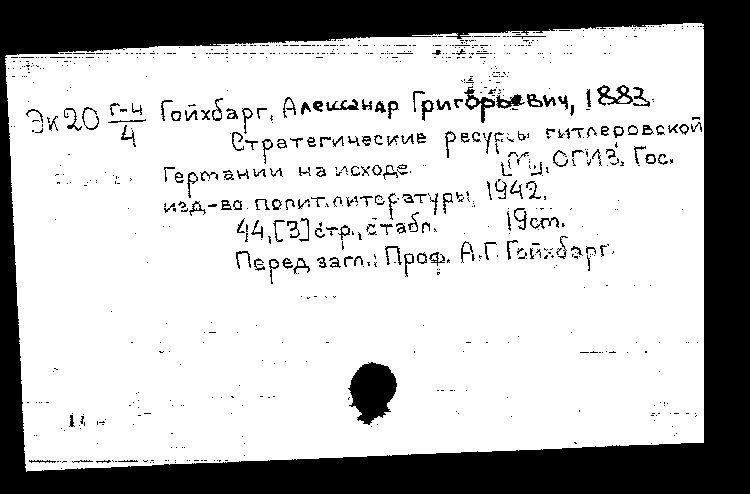 Эк20 Г-4/4 Гойхбарг, Александр Григорьевич, 1883
Стратегические ресурсы гитлеровской
Германии на исходе. [М.], ОГИЗ. Гос.
изд-во полит.литературы, 1942.
44,[3]стр., с табл. 19cm.
Перед загл.: Проф. А.Г. Гойхбарг.